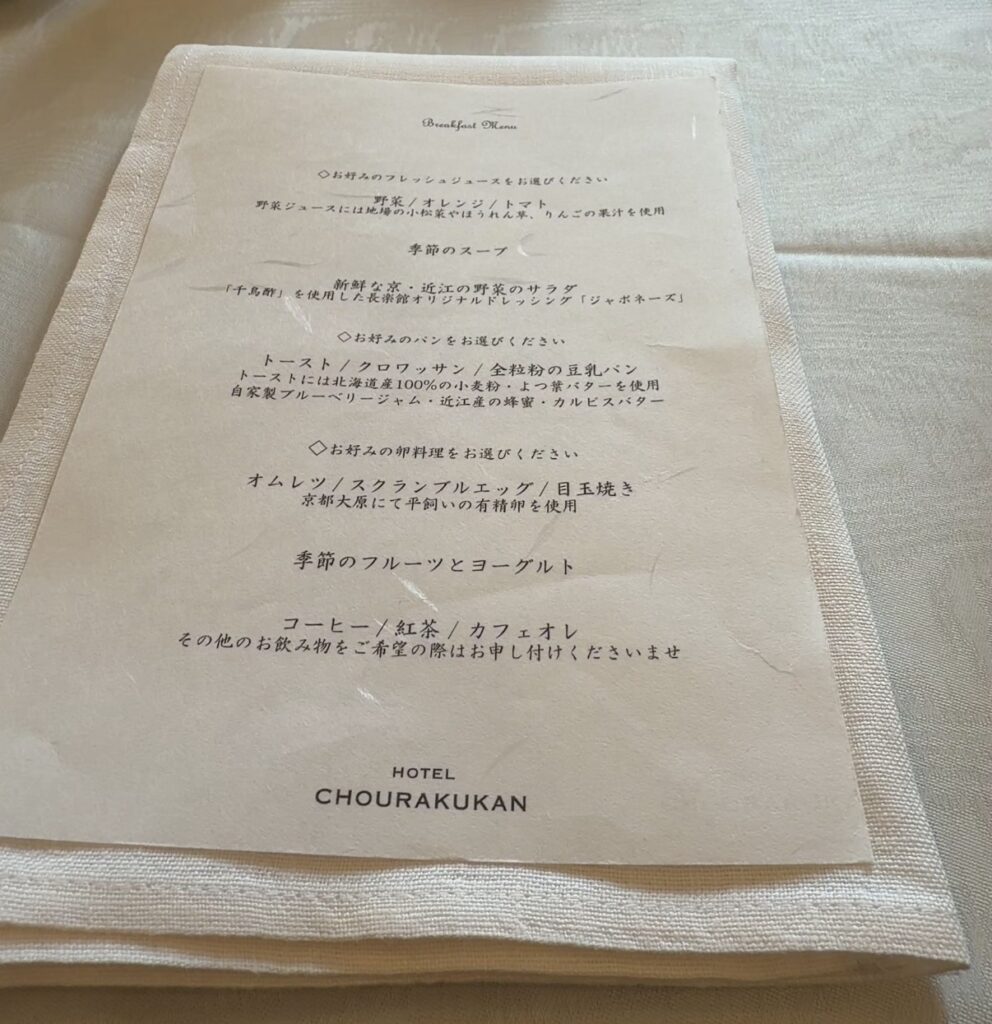 Breakfast Menu
◇お好みのフレッシュジュースをお選びください
野菜/オレンジ/トマト
野菜ジュースには地場の小松菜やほうれん草、りんごの果汁を使用
季節のスープ
新鮮な京・近江の野菜のサラダ
「千鳥酢」を使用した長楽館オリジナルドレッシング「ジャポネーズ」
◇お好みのパンをお選びください
トースト/クロワッサン/全粒粉の豆乳パン
トーストには北海道産100%の小麦粉・よつ葉バターを使用
自家製ブルーベリージャム・近江産の蜂蜜・カルピスバター
◇お好みの卵料理をお選びください
オムレツ/スクランブルエッグ/目玉焼き
京都大原にて平飼いの有精卵を使用
季節のフルーツとヨーグルト
コーヒー/紅茶/カフェオレ
その他のお飲み物をご希望の際はお申し付けくださいませ
HOTEL
CHOURAKUKAN